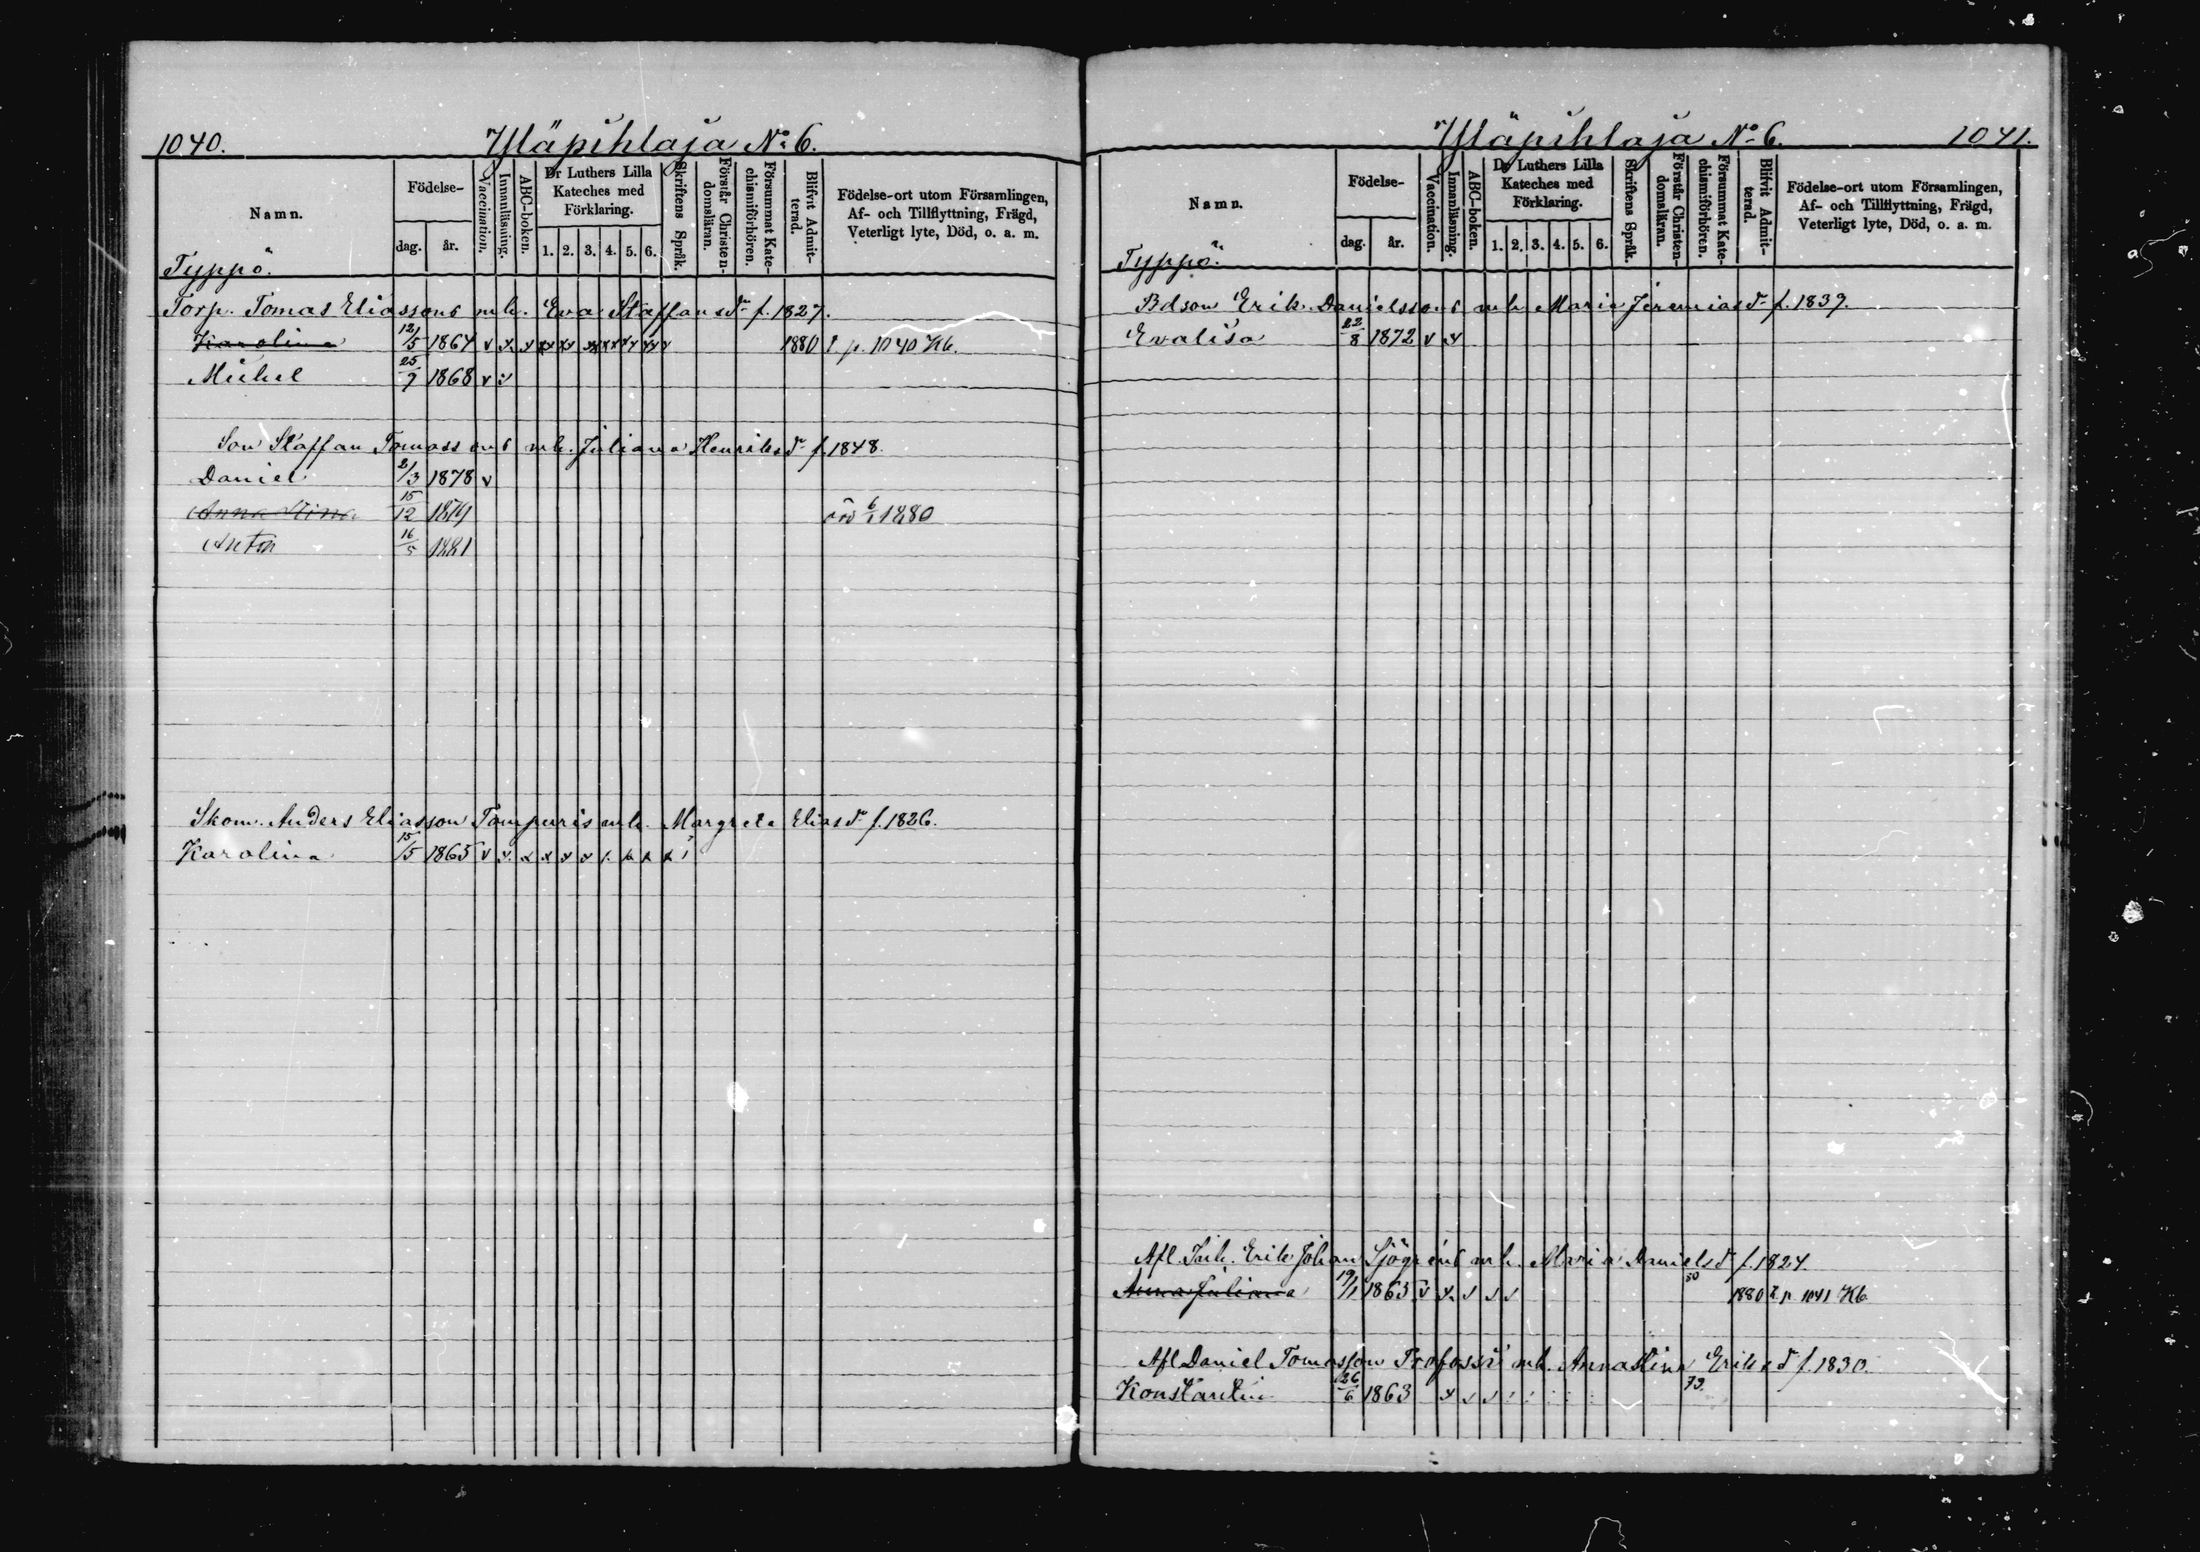 1040. Yläpihlaja No 6.
Namn. Födelse- dag. år. Vaccination. Innanläsning. ABC-boken. Dr Luthers Lilla Kateches med Förklaring. 1. 2. 3. 4. 5. 6. Skriftens Språk. Förstår Christendomsläran. Försummat Katechismiförhören. Blifvit Admitterad. Födelse-ort utom Församlingen, Af- och Tillflyttning, Frägd, Veterligt lyte, Död, o. a. m.
Typpö.
Torp. Tomas Eliassons m h. Eva Staffansdr f. 1827.
Karolina 12/5 1864 v x x xx xx xx xx xx xx 1880 p. 1040 Kb.
Mickel 25/9 1868 v
Son Staffan Tomassons m h. Juliana Henriksdr f. 1848.
Daniel 2/3 1878 v
Anna Stina 15/12 1879 död 6/1 1880
Anton 16/5 1881
Skom. Anders Eliasson Tompuris m h. Margreta Eliasdr f. 1826.
Karolina 15/5 1865 v x x x x x
Yläpihlaja No 6. 1041.
Namn. Födelse- dag. år. Vaccination. Innanläsning. ABC-boken. Dr Luthers Lilla Kateches med Förklaring. 1. 2. 3. 4. 5. 6. Skriftens Språk. Förstår Christendomsläran. Försummat Katechismiförhören. Blifvit Admitterad. Födelse-ort utom Församlingen, Af- och Tillflyttning, Frägd, Veterligt lyte, Död, o. a. m.
Typpö.
Bdson Erik Danielssons m h Maria Jeremiasdr f. 1839.
Evalisa 22/8 1872 v x
Afl. Erik Johan Sjögréns m h. Maria Danielsdr f. 1824.
Anna Juliana 19/1 1863 v x 80 1880 p. 1041 Kb
Afl Daniel Tomasson m h. Annastina Eriksdr f. 1830.
Konstantin 26/6 1863 x 79.